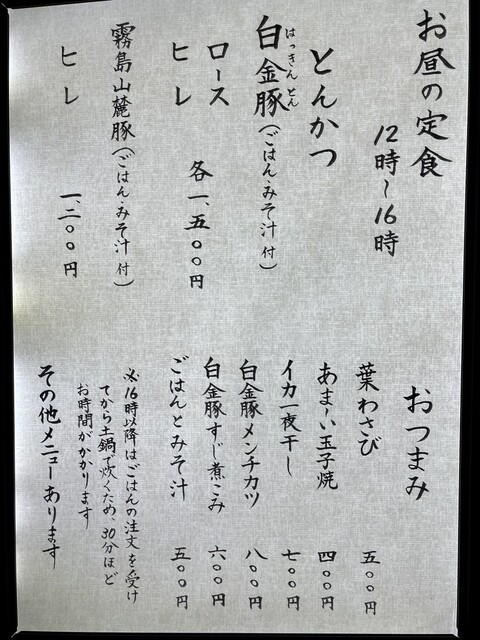 お昼の定食
12時〜16時
とんかつ
白金豚(ごはん・みそ汁付)
はっきんとん
ロース
ヒレ
各一、五〇〇円
霧島山麓豚(ごはん・みそ汁付)
ヒレ
一、二〇〇円
おつまみ
葉わさび 五〇〇円
あまーい玉子焼 四〇〇円
イカ一夜干し 七〇〇円
白金豚メンチカツ 八〇〇円
白金豚すじ煮こみ 六〇〇円
ごはんとみそ汁 五〇〇円
※16時以降はごはんの注文を受け
てから土鍋で炊くため、30分ほど
お時間がかかります
その他メニューあります